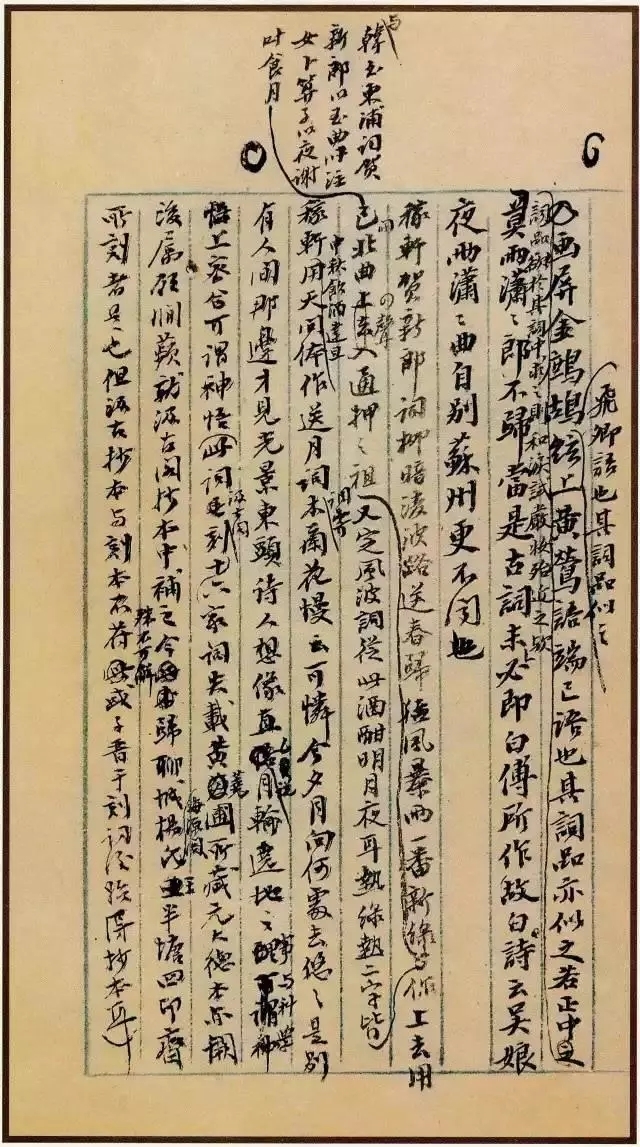 与
韓玉東浦詞賀
新郎以玉曲叶注
女卜算子以夜謝
叶食月
飛卿語也其詞品似之
画屏金鷓鴣絃上黃鶯語端己語也其詞品亦似之若正中
詞品欲於其詞中求之則和淚試嚴妝殆近之歟
莫雨瀟ミ郎不歸當是古詞未必即白傅所作故白詩云吳娘
夜雨瀟ミ曲自別蘇州更不聞也
稼軒賀新郎詞柳暗凌波路送春歸猛風暴雨一番新綠
作上去用
又定風波詞從此酒酣明月夜耳熱綠熱二字皆
已北曲上去入通押之祖
中秋飲酒達旦
稼軒用天問体作送月詞木蘭花慢云可憐今夕月向何處去悠ミ是別
有人間那邊才見光景東頭詩人想像直悟月輪遶地之事与科學
悟上密合可謂神悟此詞汲古閣刻六十家詞失載黃蕘圃所藏元大德本亦闕
後屬顧澗蘋就汲古閣抄本中補之今歸聊城楊氏海源閣王半塘四印齋
所刻者是也但汲古抄本与刻本不符殊不可解或子晉于刻詞後始得抄本耳